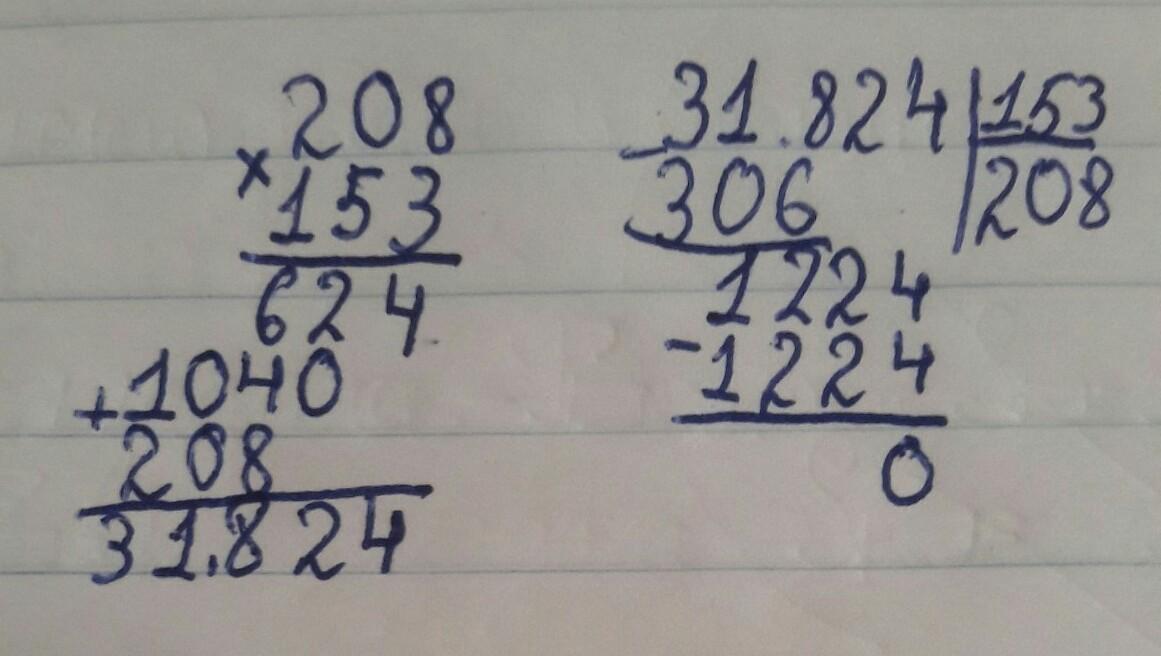 208
×153
624
+1040
208
31.824
31.824 153
-306 208
1224
-1224
0